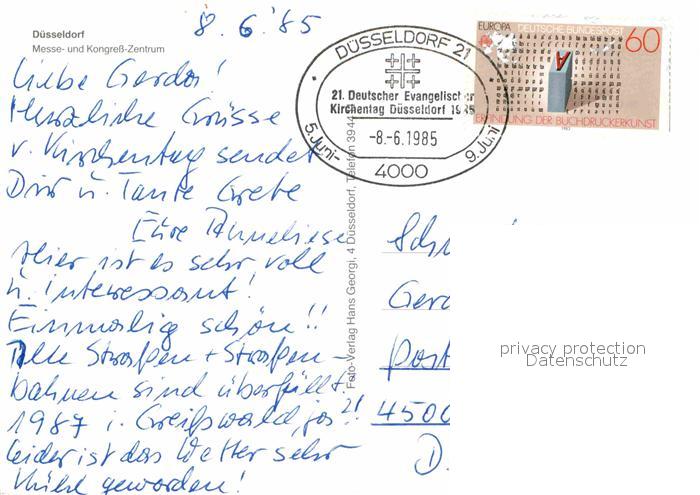 Düsseldorf
Messe- und Kongreß-Zentrum
8.6.'85
Liebe Gerda!
Herzliche Grüsse
v. Kirchentag sendet
Dir u. Tante Grete
Eure Anneliese
Hier ist es sehr voll
u. interessant!
Einmalig schön!!
Alle Straßen + Straßen-
bahnen sind überfüllt.
1987 i. Greifswald, ja?!
Leider ist das Wetter sehr
kühl geworden!
Foto-Verlag Hans Georgi, 4 Düsseldorf, Telefon 3944
DÜSSELDORF 21
21. Deutscher Evangelischer
Kirchentag Düsseldorf 1985
-8.-6.1985
5.Juni-
9.Juni
4000
EUROPA DEUTSCHE BUNDESPOST
60
A
ERFINDUNG DER BUCHDRUCKERKUNST
1983
Sch
Gerd
Post
4500
D.
privacy protection
Datenschutz